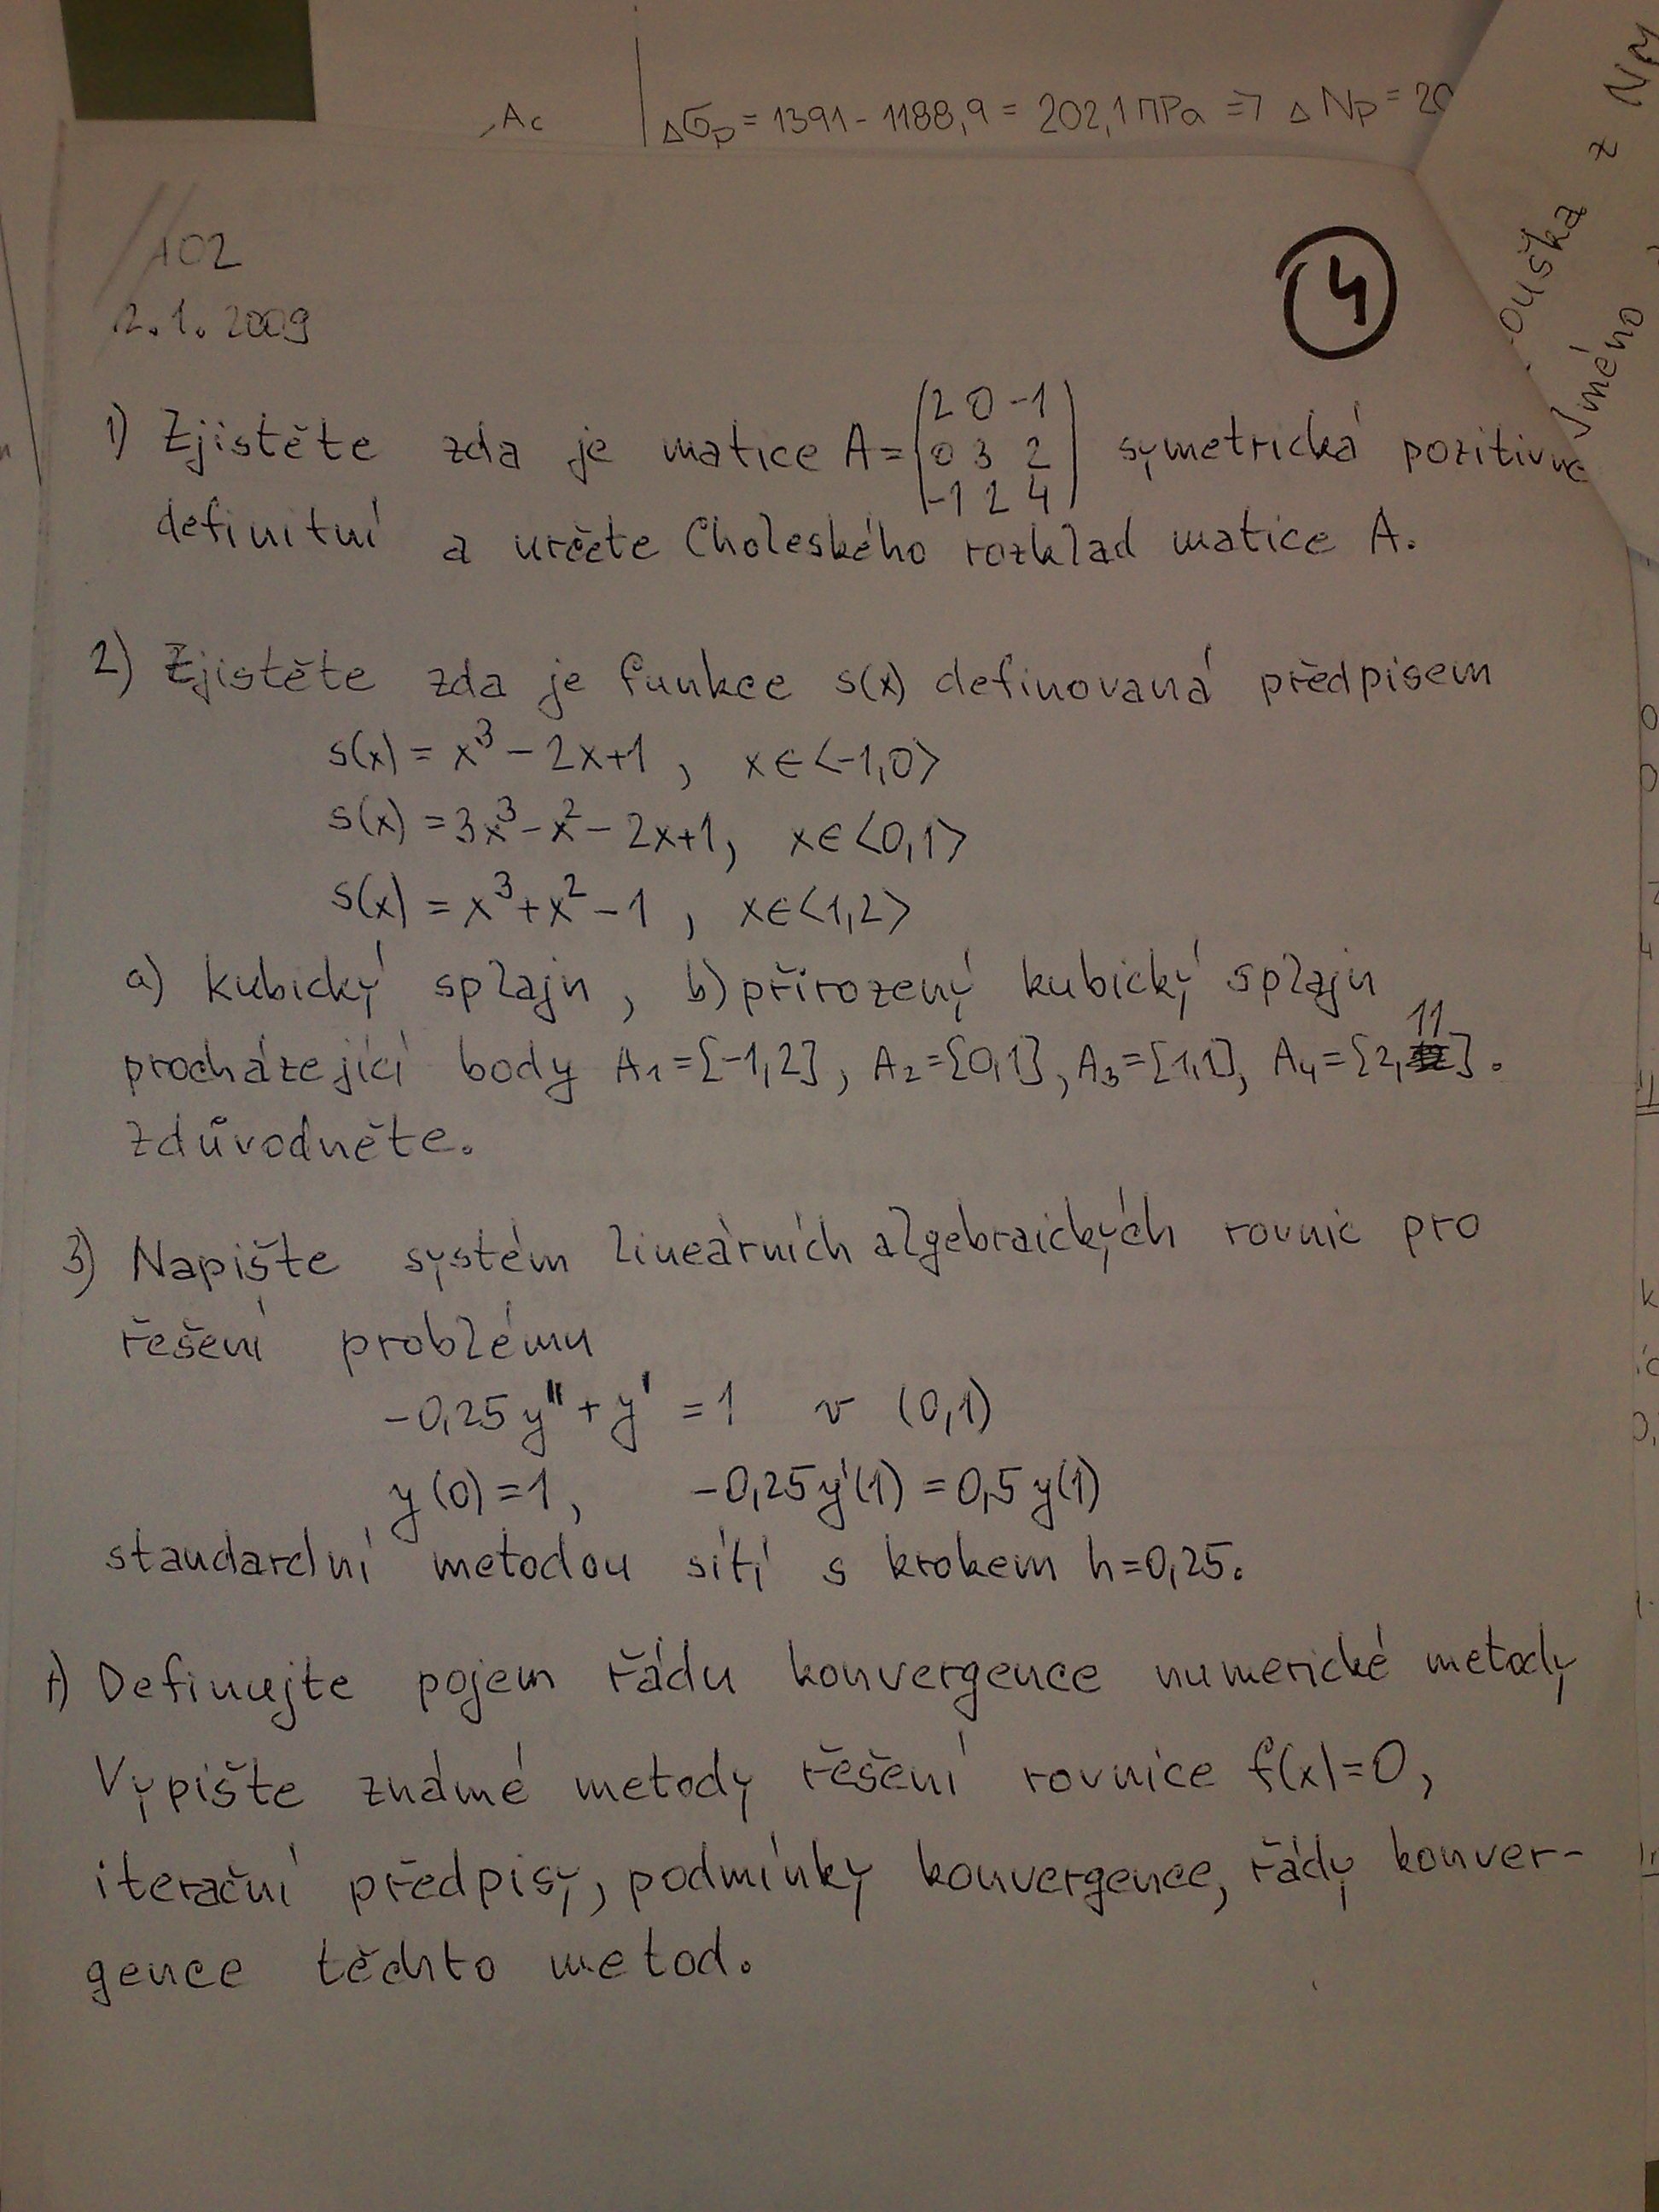 Ac
Δσp = 1391 - 1188,9 = 202,1 MPa => Δ Np = 20
z NM
ouška
Jméno
102
2.1.2009
4
1) Zjistěte zda je matice A = (2 0 -1
0 3 2
-1 2 4) symetrická pozitivně
definitní a určete Choleského rozklad matice A.
2) Zjistěte zda je funkce s(x) definovaná předpisem
s(x) = x³ - 2x+1 , x∈<-1,0>
s(x) = 3x³ - x² - 2x+1, x∈<0,1>
s(x) = x³+x² -1 , x∈<1,2>
a) kubický splajn, b) přirozený kubický splajn
procházející body A₁=[-1,2], A₂=[0,1], A₃=[1,1], A₄=[2,11].
Zdůvodněte.
3) Napište systém lineárních algebraických rovnic pro
řešení problému
-0,25y" + y' = 1 v (0,1)
y(0)=1, -0,25y'(1) = 0,5y(1)
standardní metodou sítí s krokem h=0,25.
Definujte pojem řádu konvergence numerické metody
Vypište známé metody řešení rovnice f(x)=0,
iterační předpisy, podmínky konvergence, řády konver-
gence těchto metod.